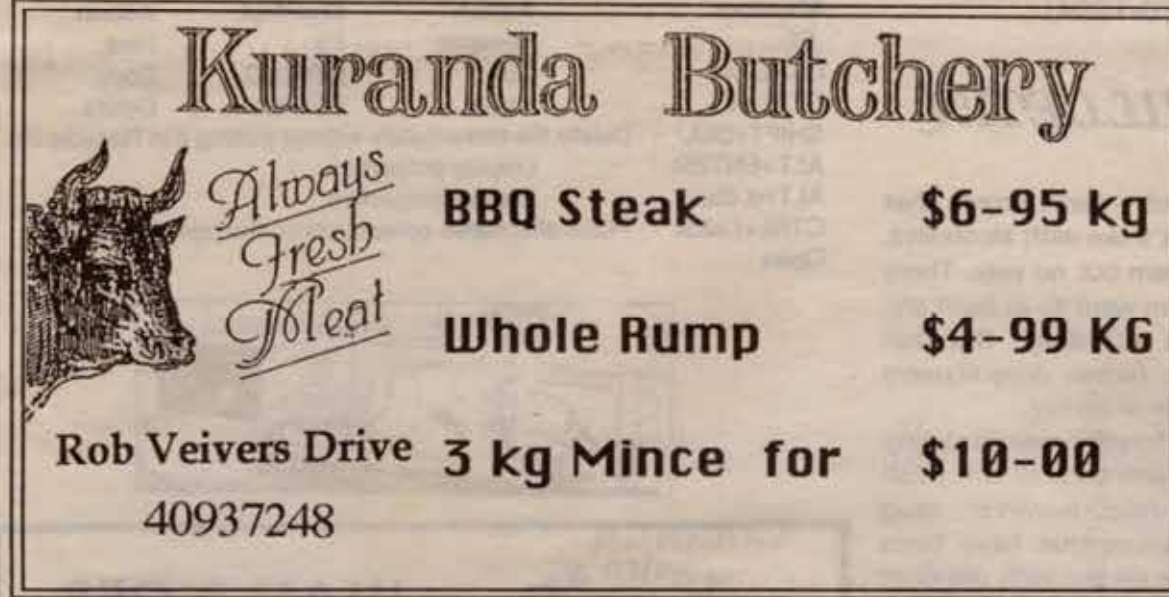 Kuranda Butchery
Always
Fresh
Meat
BBQ Steak $6-95 kg
Whole Rump $4-99 KG
3 kg Mince for $10-00
Rob Veivers Drive
40937248